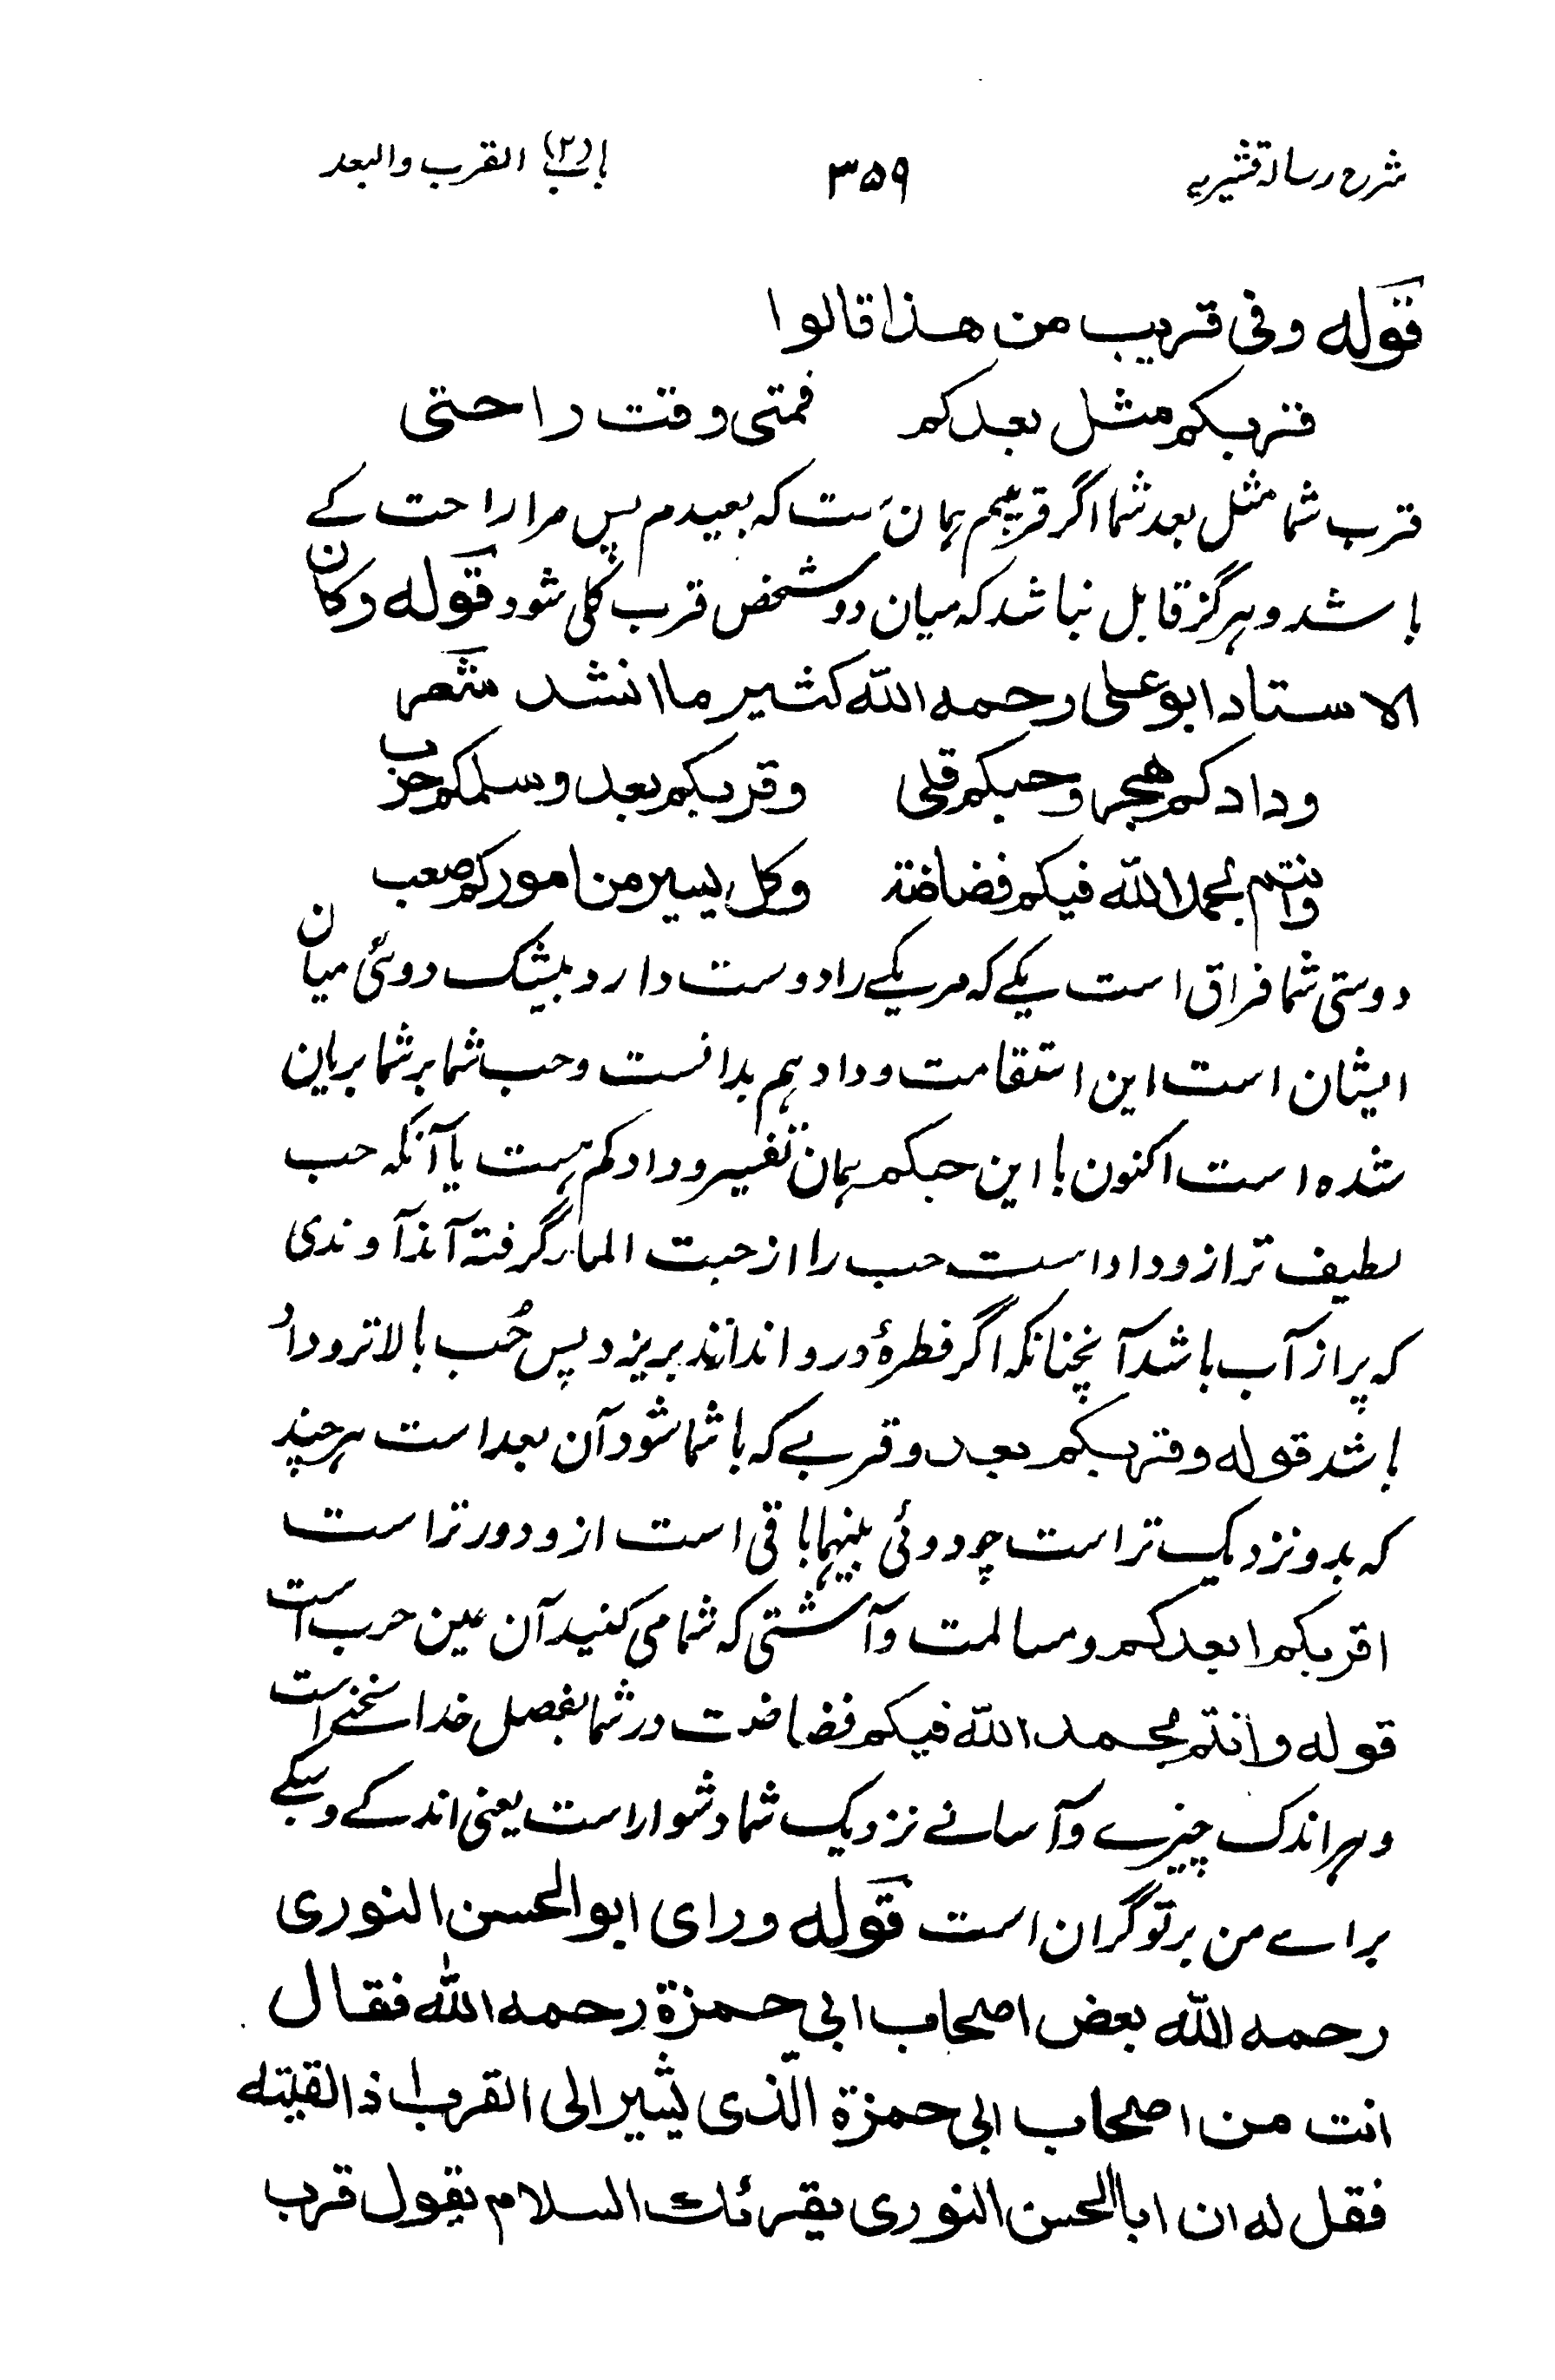 شرح رسالہ قشیریہ ۳۵۹ باب (۲) القرب والبعد
قوله وفی قریب من هذا قالوا
قربکم مثل بعدکم فمتی وقت راحتی
قرب شما مثل بعد شما اگر قریبم ہمان ست کہ بعیدم پس مرا راحت کے
باشد و ہرگز قابل نباشد کہ میان دو شخص قرب کلی شود قوله وکان
الاستاد ابو علی رحمه الله کثیر ما انشد شعر
ودادکم هجر وحبکم قلی وقربکم بعد وسلمکم حرب
وانتم بحمد الله فیکم فضاضة وکل یسیر من امورکم صعب
دوستی شما فراق است یکے کہ مر یکے را دوست دارد بیشک دوئی میان
ایشان است این استقامت وداد ہم بدانست وحب شما بر شما بریان
شدہ است اکنون با این حبکم ہمان تفسیر ودادکم ہست یا آنکہ حب
لطیف تر از وداد است حب را از حبت الماء گرفتہ آند آوندی
کہ پر از آب باشد آنچنانکہ اگر قطرۂ درو اندازند بریزد پس حُب بالاتر وداد
باشد قوله وقربکم بعد وقربے کہ با شما شود آن بعد است ہرچند
کہ بدو نزدیک تر است چو دوئی بینہما باقی است ازو دورتر است
اقربکم ابعدکم ومسالمت وآشتی کہ شما می کنید آن عین حرب است
قوله وانتم بحمد الله فیکم فضاضت در شما بفضل خدا سختے است
وہر اندک چیزے وآسانے نزدیک شما دشوار است یعنی اندکے وسبکے
براے من بر تو گران است قوله ورای ابو الحسن النوری
رحمه الله بعض اصحاب ابی حمزة رحمه الله فقال
انت من اصحاب ابی حمزة الّذی یشیر الی القرب اذا لقیته
فقل له ان ابا الحسن النوری یقرئك السلام یقول قرب